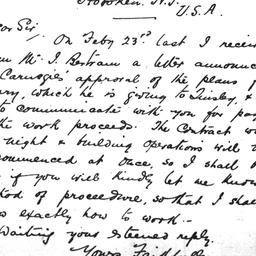 Hoboken, N.J.
U.S.A.
ear Sir,
On Feby 23rd last I recei
m Mr. J. Bertram a letter announc
Carnegie's approval of the plans f
ry, which he is giving to Tinsley, &
to communicate with you for pay
the work proceeds. The Contract w
night & building operations will
ommenced at once, so I shall
if you will kindly let me know
hod of proceedure, so that I shal
s exactly how to work.—
waiting your esteemed reply
Yours Faithfull